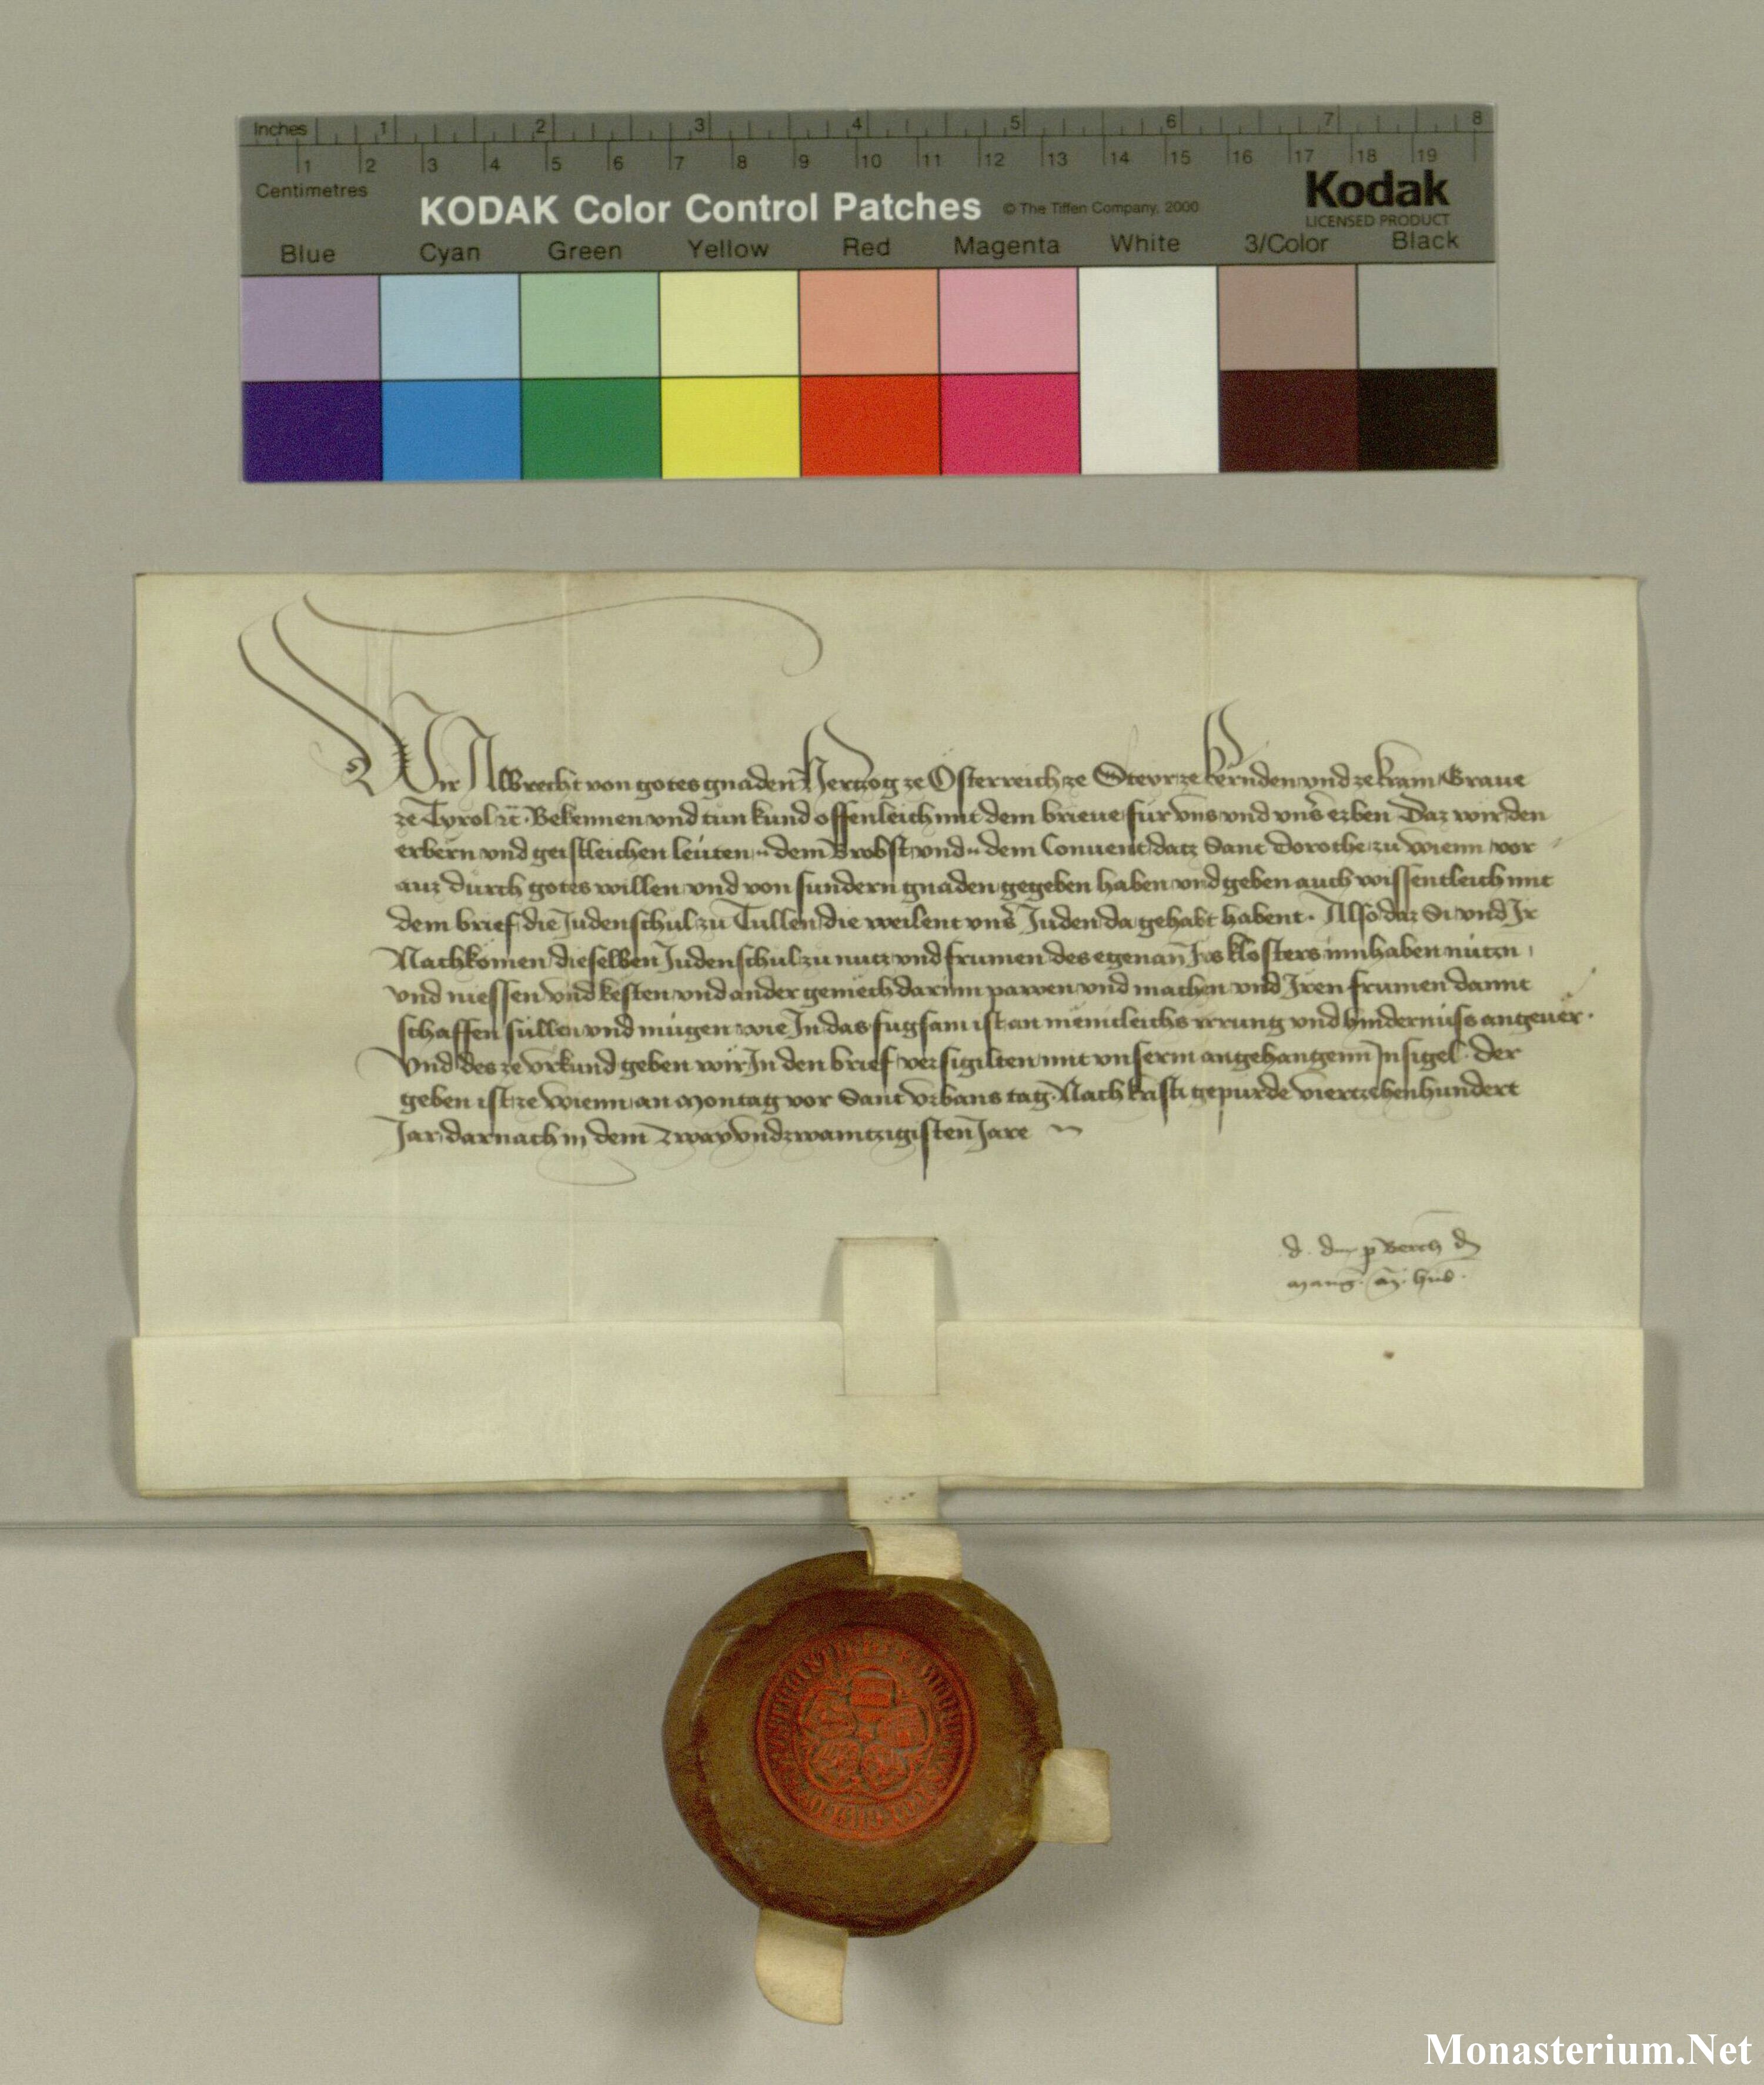 Inches 1 2 3 4 5 6 7 8
1 2 3 4 5 6 7 8 9 10 11 12 13 14 15 16 17 18 19
Centimetres
KODAK Color Control Patches © The Tiffen Company, 2000 Kodak
LICENSED PRODUCT
Blue Cyan Green Yellow Red Magenta White 3/Color Black
Wir Albrecht von gotes gnaden Hertzog ze Österreich ze Steyr ze kernden und ze krain Graue
ze Tyrol ꝛc. Bekennen vnd tun kund offenleich mit dem brieue für vns vnd vns̄ erben Daz wir den
erbern vnd geistleichen leüten .. dem Brobst vnd .. dem Conuent datz Sant Dorothe zu wienn vor
auz durch gotes willen vnd von sundern gnaden gegeben haben vnd geben auch wissentleich mit
dem brief die Judenschul zu Tullen die weilent vns̄ Juden da gehabt habent. Also daz Si vnd Ir
Nachkomen dieselben Judenschul zu nutz vnd frumen des egenan̄ Irs klosters innhaben nützn
vnd niessen vnd kesten vnd ander gemëch darinn pawen vnd machen vnd Iren frumen damit
schaffen süllen vnd mügen wie In das fugsam ist an menicleichs irrung vnd hindernüss angeuër.
Vnd des ze vrkund geben wir In den brief versigilten mit vnserm angehangenn Insigel. Der
geben ist ze wienn an Montag vor Sant Vrbans tag. Nach kristi gepurde viertzehenhundert
Jar darnach in dem Zway vnd zwaintzigisten Jare
Monasterium.Net